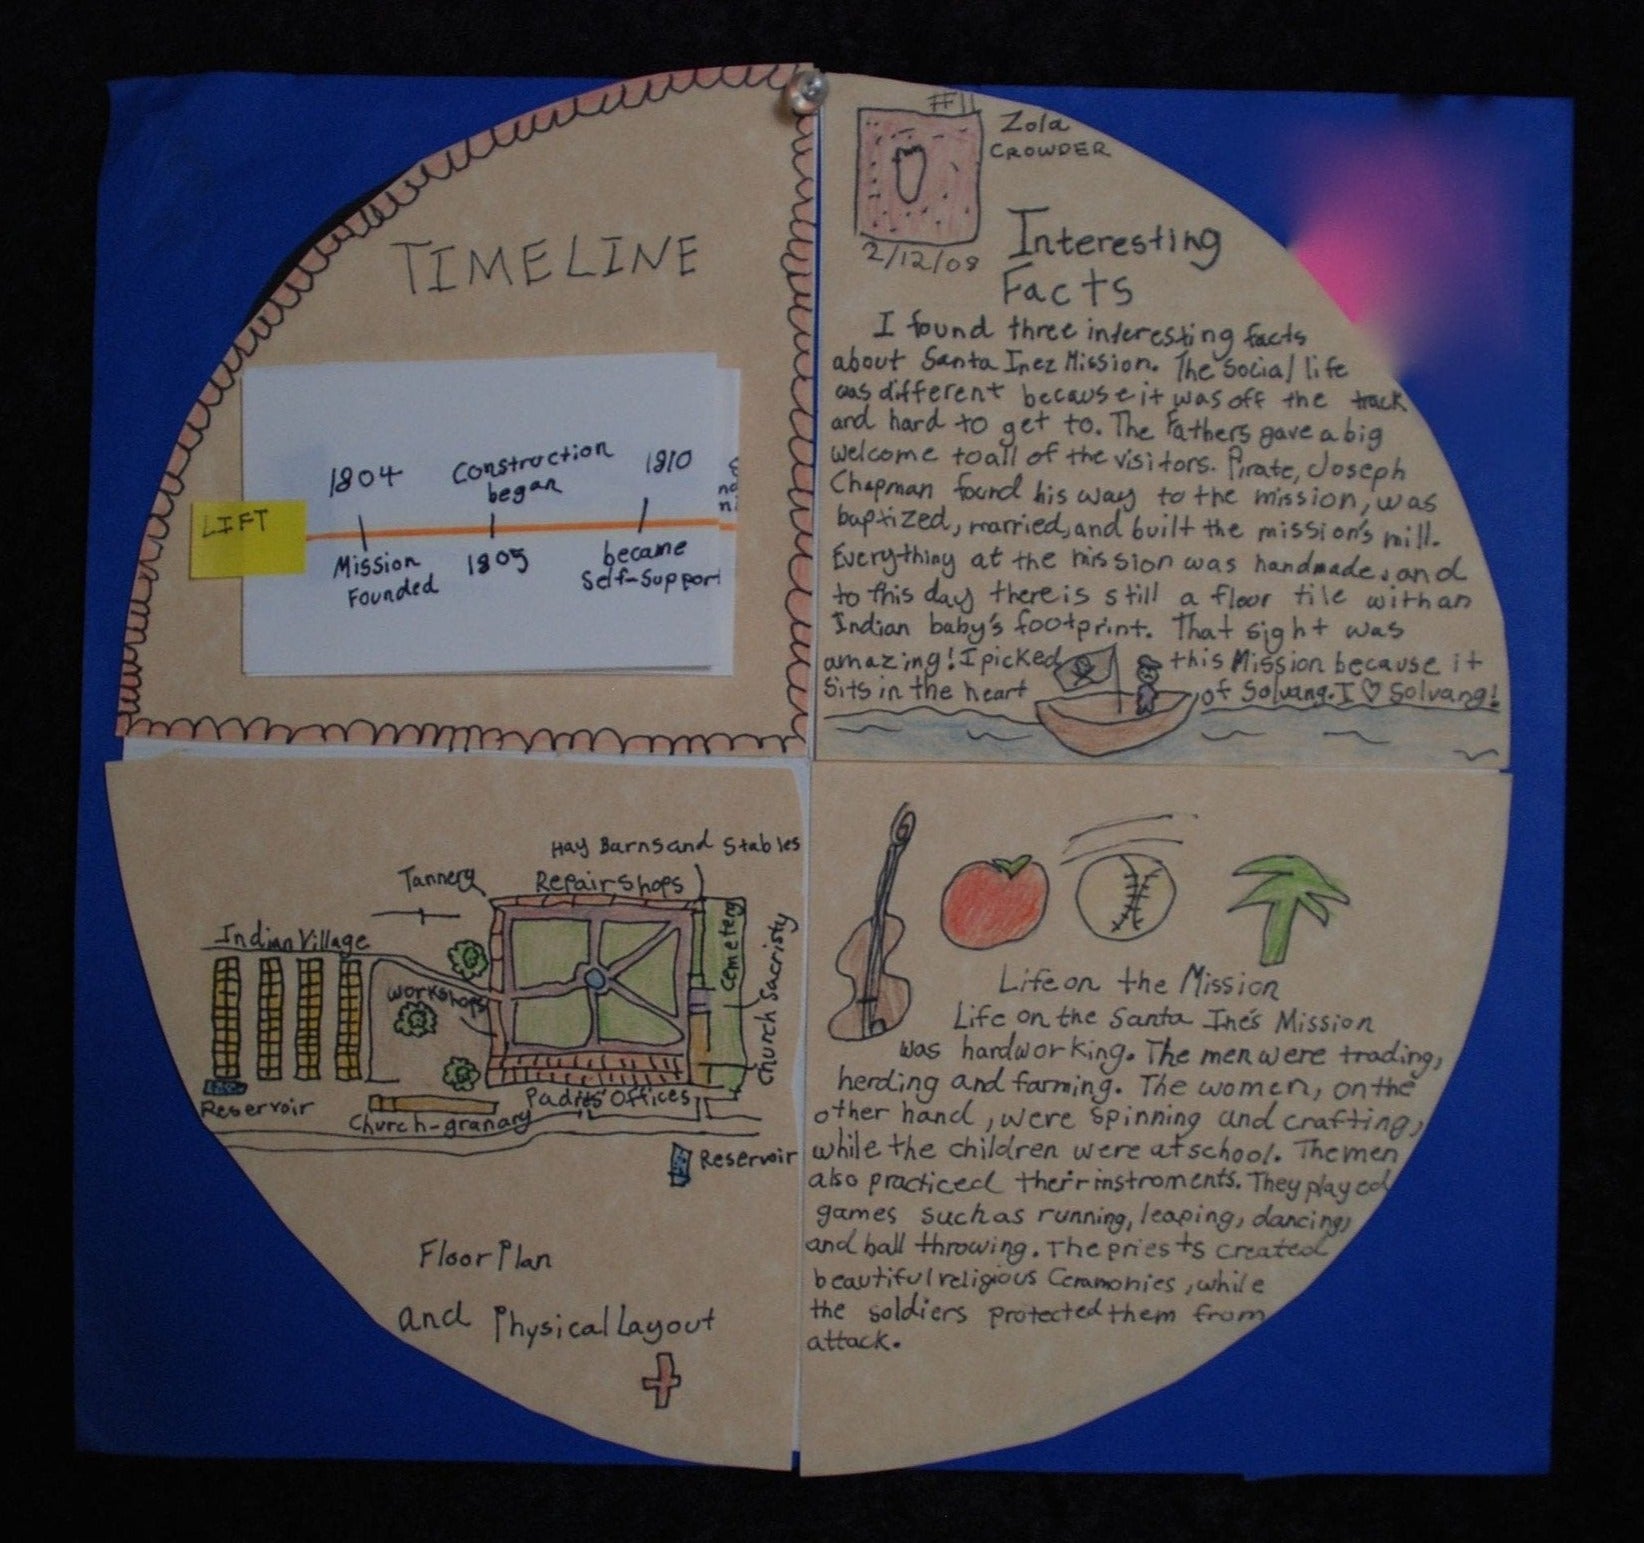 TIMELINE
LIFT
1804
Construction
began
1810
Mission
Founded
1805
became
Self-Support
#11
Zola
CROWDER
2/12/09
Interesting
Facts
I found three interesting facts
about Santa Inez Mission. The Social life
was different because it was off the track
and hard to get to. The Fathers gave a big
welcome to all of the visitors. Pirate, Joseph
Chapman found his way to the mission, was
baptized, married, and built the mission's mill.
Everything at the mission was handmade, and
to this day there is still a floor tile with an
Indian baby's footprint. That sight was
amazing! I picked this Mission because it
Sits in the heart of Solvang. I ♡ Solvang!
Hay Barns and Stables
Tannery
Repair shops
Indian Village
Workshops
Cemetery
Church Sacristy
Reservoir
Padres' Offices
Church-granary
Reservoir
Floor Plan
and Physical Layout
Life on the Mission
Life on the Santa Inés Mission
was hardworking. The men were trading,
herding and farming. The women, on the
other hand, were spinning and crafting,
while the children were at school. The men
also practiced their instroments. They played
games such as running, leaping, dancing,
and ball throwing. The priests created
beautiful religious Ceramonies, while
the soldiers protected them from
attack.